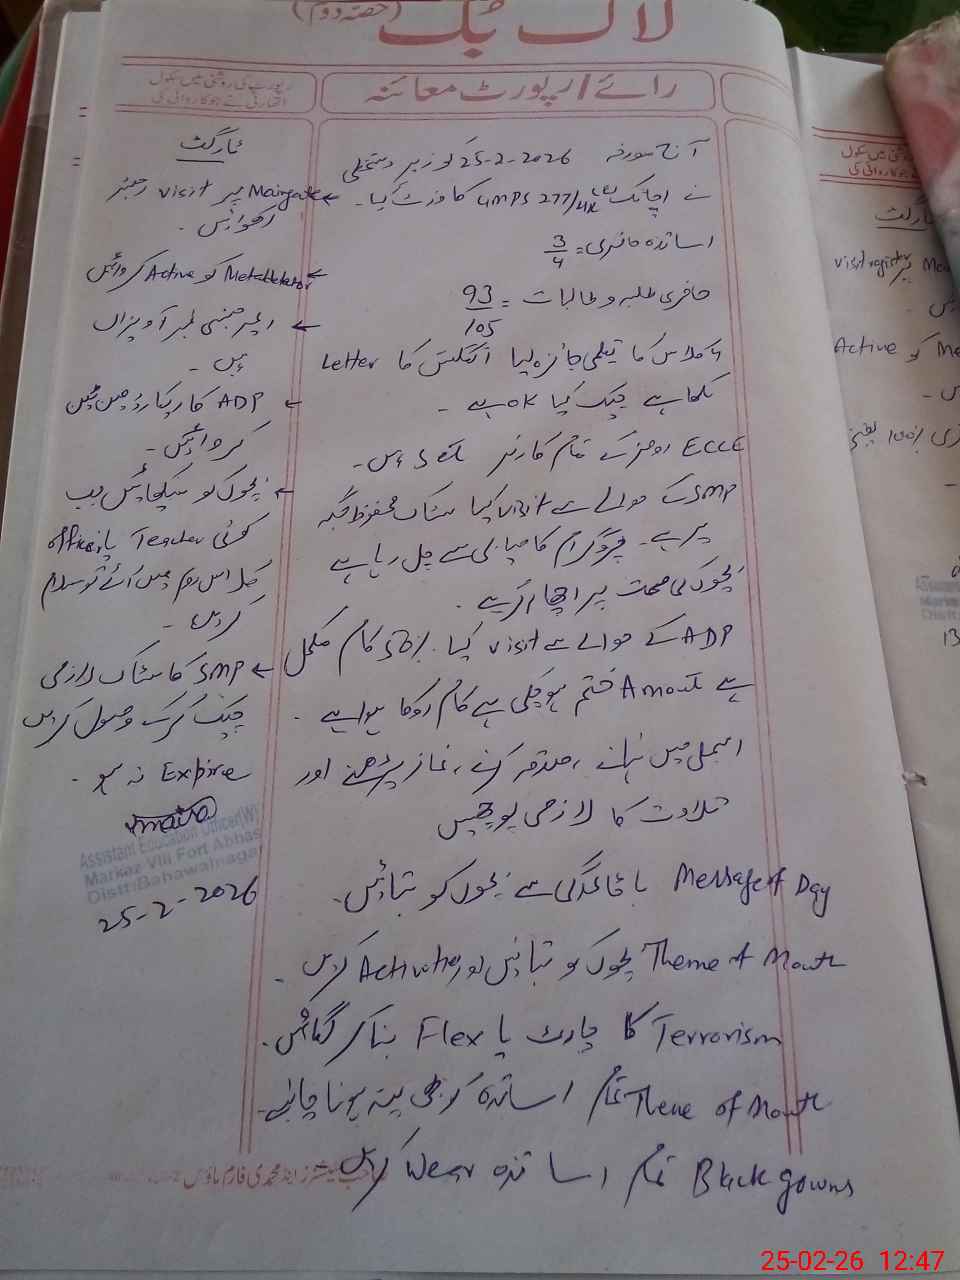 لاگ بک (حصہ دوم)
رائے / رپورٹ معائنہ
رپورٹ کی روشنی میں سکول
اتھارٹی نے جو کاروائی کی
آج مورخہ 25-2-2026 کو زیر دستخطی
نے اچانک GMPS 277/HR کا وزٹ کیا۔
اساتذہ حاضری = 3/4
حاضری طلبہ و طالبات = 93/105
کلاس کا تعلیمی جائزہ لیا انگلش کا Letter
لکھا ہے چیک کیا ok ہے۔
ECCE روم کے تمام کارنر Set ہیں۔
SMP کے حوالے سے Visit کیا سٹاک محفوظ جگہ
پر ہے۔ پروگرام کامیابی سے چل رہا ہے
بچوں کی صحت پر اچھا اثر ہے۔
ADP کے حوالے سے visit کیا۔ 50% کام مکمل
ہے Amount ختم ہو چکی ہے کام روکا ہوا ہے۔
اسمبلی میں نہانے، صدقہ کرنے، نماز پڑھنے اور
تلاوت کا لازمی پوچھیں
Message of Day باقاعدگی سے بچوں کو بتائیں۔
Theme of Month بچوں کو بتائیں اور Activities کرائیں۔
Terrorism کا چارٹ یا Flex بنا کر لگائیں۔
Theme of Month تمام اساتذہ کو بھی پتہ ہونا چاہئے۔
Black gowns تمام اساتذہ Wear کریں
ٹارگٹ
Maingate پر visit رجسٹر
رکھوائیں۔
Metaldetector کو Active کروائیں
ایمرجنسی نمبر آویزاں
ہیں۔
ADP کا ریکارڈ مین ٹین
کروائیں۔
بچوں کو سیکھائیں جب
کوئی Teacher یا officer
کلاس روم میں آئے تو سلام
کریں۔
SMP کا سٹاک لازمی
چیک کر کے وصول کریں
Expire نہ ہو۔
Assistant Education Officer(W)
Markaz VIII Fort Abbas
Distt:Bahawalnagar
25-2-2026
ٹارگٹ
visit register
Active کو
100%
25-02-26 12:47